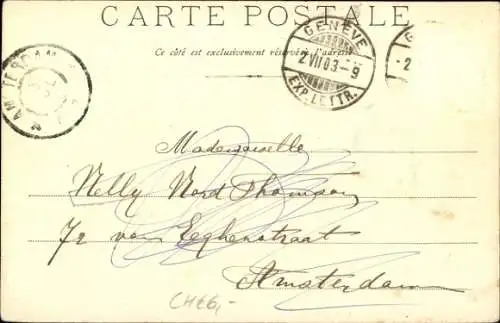 CARTE POSTALE
Ce côté est exclusivement réservé à l'adresse
GENÈVE
2.VII.03-9
EXP. LETTR.
G
-2.
AMSTERDAM
Mademoiselle
Nelly Nord Thomson
72 van Eeghenstraat
Amsterdam
CH€6,-